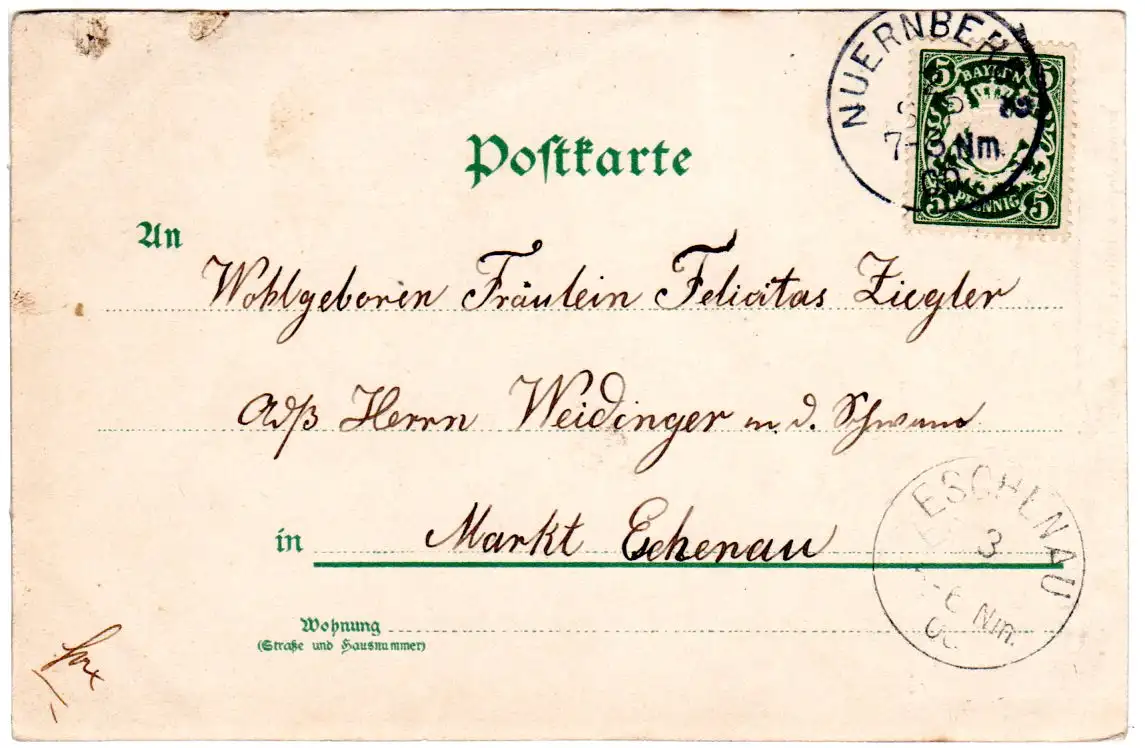 NUERNBERG 2
7-8 Nm.
00
5 BAYERN 5
5 PFENNIG 5
Postkarte
An
Wohlgeboren Fräulein Felicitas Ziegler
Adß Herrn Weidinger z. d. Schwan
in Markt Echenau
ESCHENAU
3
-6 Nm.
00
Wohnung
(Straße und Hausnummer)